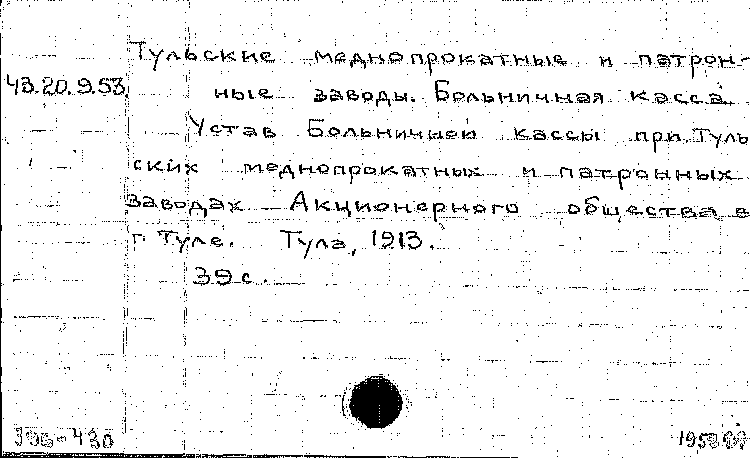 Тульские меднопрокатные и патрон-
43.20.9.53.
ные заводы. Больничная касса.
Устав Больничной кассы при Туль
ских меднопрокатных и патронных
заводах Акционерного общества в
г. Туле. Тула, 1913.
39 с.